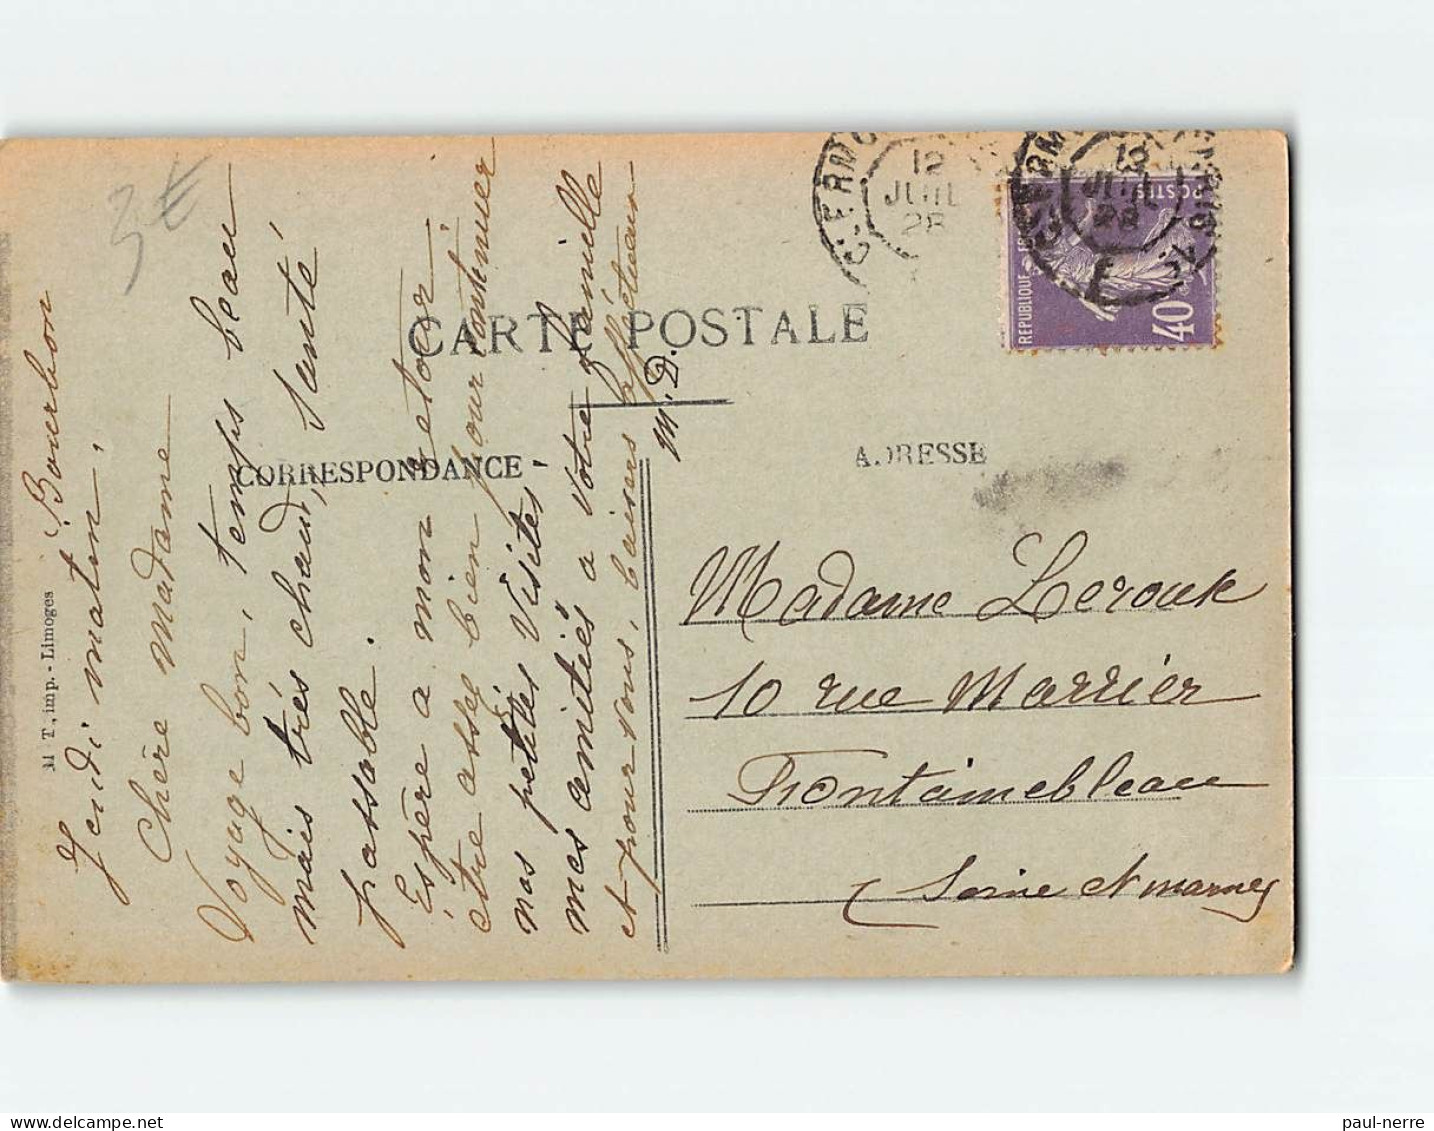 3€
CARTE POSTALE
CORRESPONDANCE
ADRESSE
M T, imp. - Limoges
Bourbon
Jeudi matin,
Chère Madame
Voyage bon, temps beau
mais très chaud, santé
passable.
Espère a mon retour
être assez bien pour continuer
nos petites visites.
mes amitiés a votre famille
et pour vous, baisers affectueux
M. D.
Madame Leroux
10 rue Marrier
Fontainebleau
(Seine et marne)
12
JUIL
28
12
JUIL
28
REPUBLIQUE FR
POSTES
40
paul-nerre